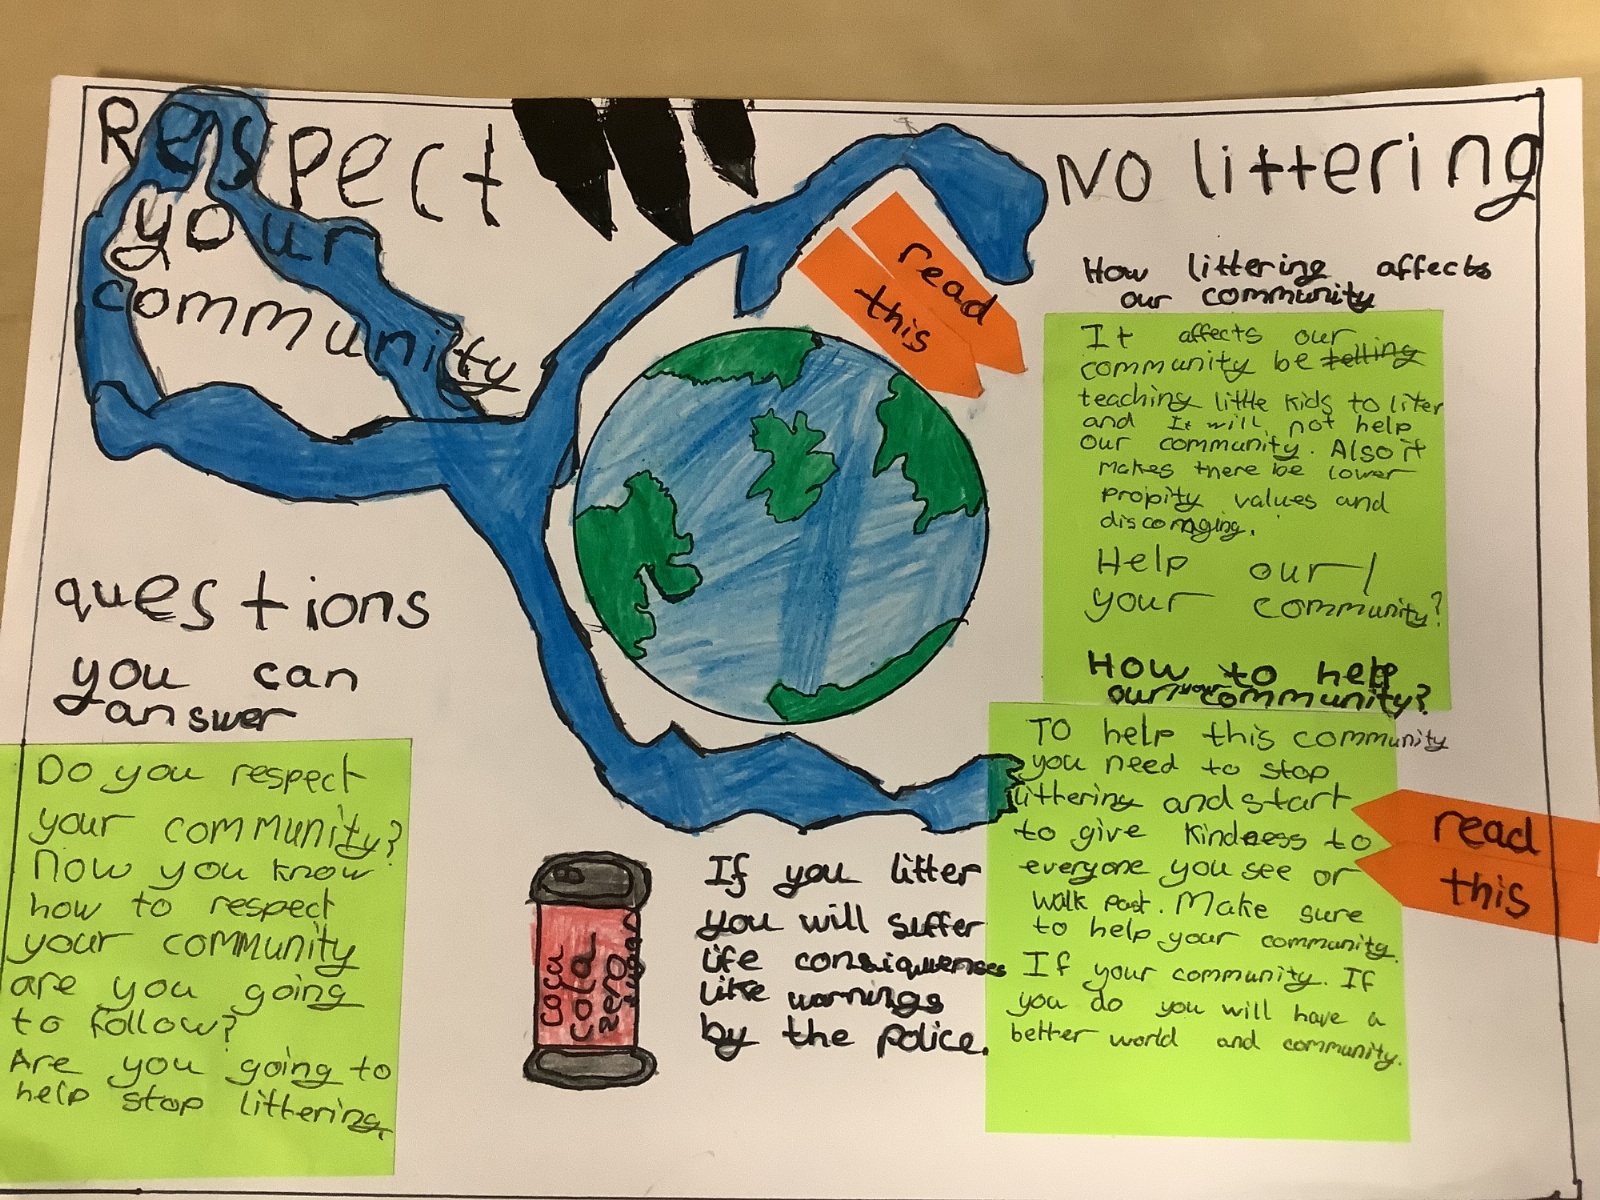 Respect
your
community
No littering
read
this
How littering affects
our community
It affects our
community be telling
teaching little kids to liter
and It will not help
our community. Also it
makes there be lower
propity values and
discoraging.
Help our/
your community?
questions
you can
answer
Do you respect
your community?
Now you know
how to respect
your community
are you going
to follow?
Are you going to
help stop littering.
coca
cola
zero
sugar
If you litter
you will suffer
life consiquenses
like warnings
by the police.
How to help
our/your community?
To help this community
you need to stop
littering and start
to give kindness to
everyone you see or
walk past. Make sure
to help your community.
If your community. If
you do you will have a
better world and community.
read
this